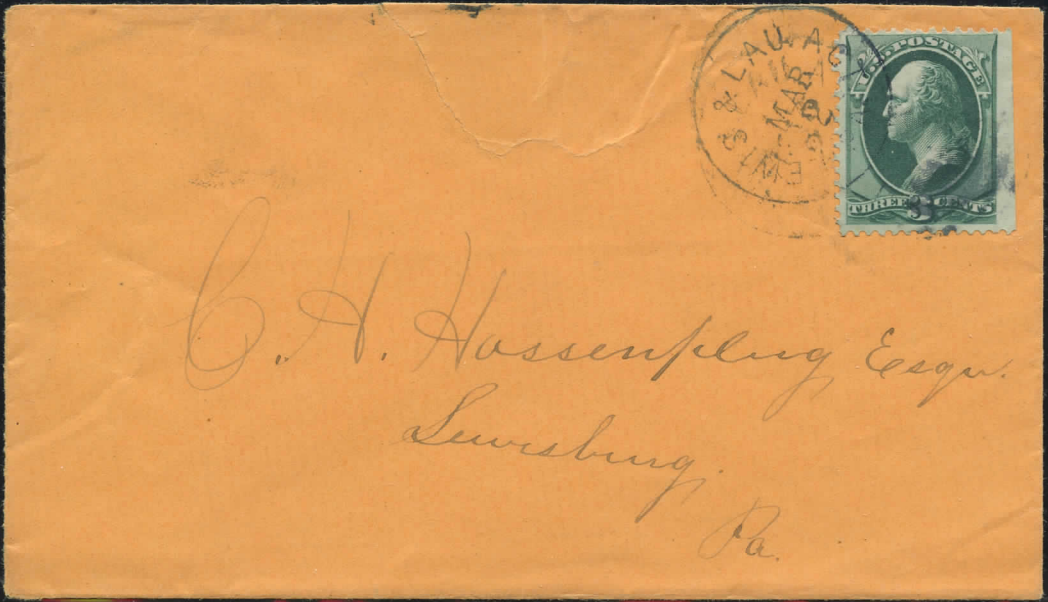 WIS & LAUACK
MAR
U.S. POSTAGE
THREE 3 CENTS
C. H. Hossenplug Esqr.
Lewisburg,
Pa.